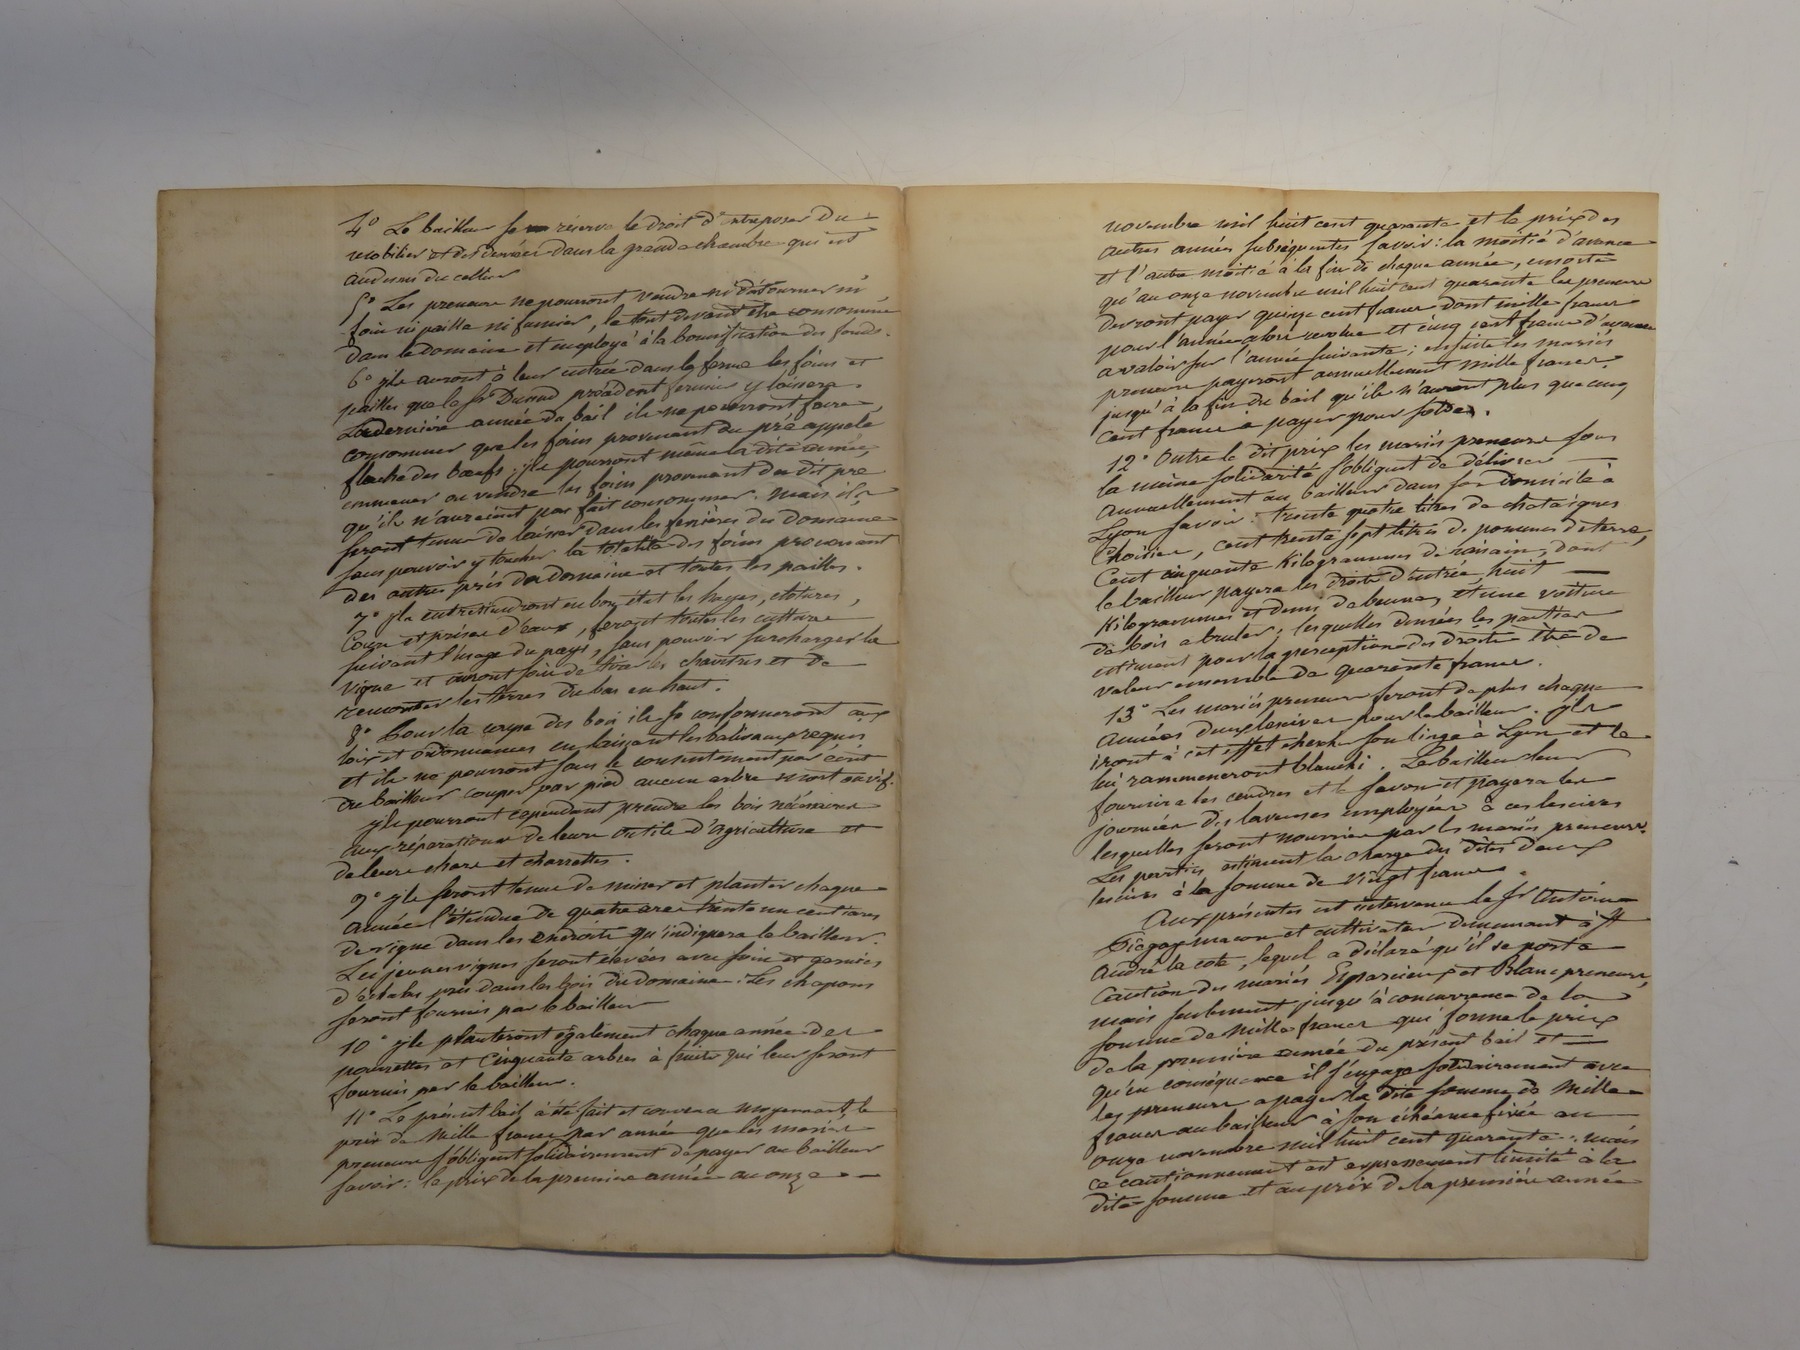 4° Le bailleur se réserve le droit d'entreposer du
mobilier et des denrées dans la grande chambre qui est
au dessus du cellier
5° Les preneurs ne pourront vendre ni détourner ni
foin ni paille ni fumier, le tout devant être consommé
dans le domaine et employé à la bonification des fonds.
6° ils auront à leur entrée dans la ferme les foins et
pailles que le Sr Durand précédent fermier y laissera.
La dernière année du bail ils ne pourront faire
consommer que les foins provenant du pré appelé
des bœufs; ils pourront même la dite année
emmener ou vendre les foins provenant du dit pré
qu'ils n'auraient pas fait consommer. mais ils
seront tenus de laisser dans les fenières du domaine
sans pouvoir y toucher la totalité des foins provenant
des autres prés du domaine et toutes les pailles.
7° ils entretiendront en bon état les hayes, clotures,
Cours et prises d'eaux, feront toutes les cultures
suivant l'usage du pays, sans pouvoir surcharger la
vigne et auront soin de tirer les chaintres et de
remonter les terres du bas en haut.
8° Pour la coupe des bois ils se conformeront aux
loix et ordonnances en laissant les baliveaux requis
et ils ne pourront sans le consentement par écrit
du bailleur couper par pied aucun arbre mort ou vif.
ils pourront cependant prendre les bois nécessaires
aux réparations de leurs outils d'agriculture et
de leurs chars et charrettes.
9° ils seront tenus de miner et planter chaque
année l'étendue de quatre ares trente un centiares
de vigne dans les endroits qu'indiquera le bailleur.
Les jeunes vignes seront élevées avec soin et garnies
d'échalas pris dans les bois du domaine. Les chapons
seront fournis par le bailleur
10° ils planteront également chaque année des
pourrettes et Cinquante arbres à fruits qui leur seront
fournis par le bailleur.
11° Le présent bail a été fait et convenu moyennant le
prix de Mille francs par année que les mariés
preneurs s'obligent solidairement de payer au bailleur
savoir: le prix de la première année au onze
novembre mil huit cent quarante et le prix des
autres années subséquentes savoir: la moitié d'avance
et l'autre moitié à la fin de chaque année, ensorte
qu'au onze novembre mil huit cent quarante les preneurs
devront payer quinze cent francs dont mille francs
pour l'année alors revolue et cinq cent francs d'avance
a valoir sur l'année suivante; ensuite les mariés
preneurs payeront annuellement mille francs
jusqu'à la fin du bail qu'ils n'auront plus que cinq
cent francs à payer pour solde.
12° Outre le dit prix les mariés preneurs sous
la même solidarité s'obligent de délivrer
annuellement au bailleur dans son domicile à
Lyon savoir: trente quatre litres de chataignes
Choisies, cent trente sept litres de pommes de terre,
Cent cinquante Kilogrammes de raisin, dont
le bailleur payera les droits d'entrée, huit
Kilogrammes et demi de beurre, et une voiture
de bois a bruler; lesquelles denrées les parties
estiment pour la perception des droits être de
valeur ensemble de quarante francs.
13° Les mariés preneurs feront de plus chaque
années deux lescives pour le bailleur. ils
iront à cet effet chercher son linge à Lyon et le
lui rammeneront blanchi. Le bailleur leur
fournira les cendres et le savon et payera les
journées des laveuses employées à ces lescives
lesquelles seront nourries par les mariés preneurs.
Les parties estiment la charge des dites deux
lescives à la somme de Vingt francs.
Aux présentes est intervenu le Sr Antoine
macon et cultivateur demeurant à St
André la cote, lequel a déclaré qu'il se porte
Caution des mariés et Blanc preneurs,
mais seulement jusqu'à concurrence de la
somme de Mille francs qui forme le prix
de la première année du présent bail et
qu'en conséquence il s'engage solidairement avec
les preneurs a payer la dite somme de Mille
francs au bailleur à son échéance fixée au
onze novembre mil huit cent quarante. mais
ce cautionnement est expressement limité à la
dite somme et au prix de la première année